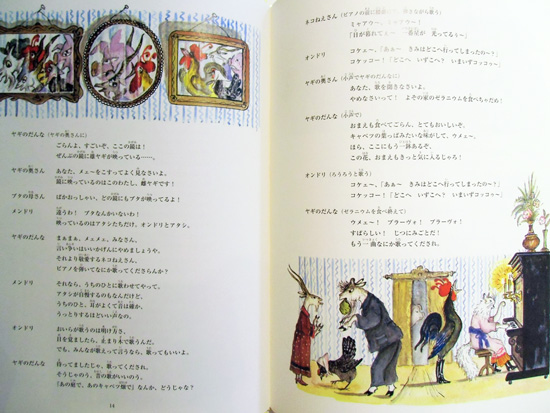 ヤギのだんな（ヤギの奥さんに）
ごらんよ、すごいぞ、ここの鏡は！
ぜんぶの鏡に雄ヤギが映っている……。
ヤギの奥さん　あなた、メェ〜をこすってよく見なさいよ。
鏡に映っているのはこのわたし、雌ヤギです！
ブタの母さん　ばかおっしゃい、どの鏡にもブタが映ってるよ！
メンドリ　違うわ！　ブタなんかいないわ！
映っているのはアタシたちだけ。オンドリとアタシ。
ヤギのだんな　まぁまぁ、メェメェ、みなさん、
言い争いはいいかげんにやめましょうや。
それより敬愛するネコねえさん、
ピアノを弾いてなにか歌ってくださらんか？
メンドリ　それなら、うちのひとに歌わせてやって。
アタシが自慢するのもなんだけど、
うちのひと、耳がよくて音は確か、
うっとりするほどいい声なの。
オンドリ　おいらが歌うのは明け方さ。
目を覚ましたら、止まり木で歌うんだ。
でも、みんなが歌えって言うなら、歌ってもいいよ。
ヤギのだんな　待ってましたじゃ、歌ってくだされ。
そうじゃのう、昔の歌がいいのう。
「あの庭で、あのキャベツ畑で」なんか、どうじゃな？
14
ネコねえさん（ピアノの
ミャアウ〜、ミャアウ〜！
「日が暮れてぇ〜　一番星が　光ってるぅ〜」
オンドリ　コケェ〜、「あぁ〜　きみはどこへ行ってしまったの〜？」
コケッコー！「どこへ　いずこへ？　いまいずコッコゥ〜」
ヤギの奥さん（小声でヤギのだんなに）
あなた、歌を聞きなさいよ。
やめなさいって！　よその家のゼラニウムを食べちゃだめ！
ヤギのだんな（小声で）
おまえも食べてごらん、とてもおいしいぞ。
キャベツの葉っぱみたいな味がして、ウメェ〜。
ほら、ここにもう一鉢あるぞ。
この花、おまえもきっと気に入るじゃろ！
オンドリ（ろうろうと歌う）
コケェ〜、「あぁ〜　きみはどこへ行ってしまったの〜？」
コケッコー！「どこへ　いずこへ？　いまいずコッコゥ〜」
ヤギのだんな（ゼラニウムを食べ終えて）
ウメェ〜！　ブラーヴォ！　ブラーヴォ！
すばらしい！　じつにみごとだ！
もう一曲なにか歌ってくだされ。